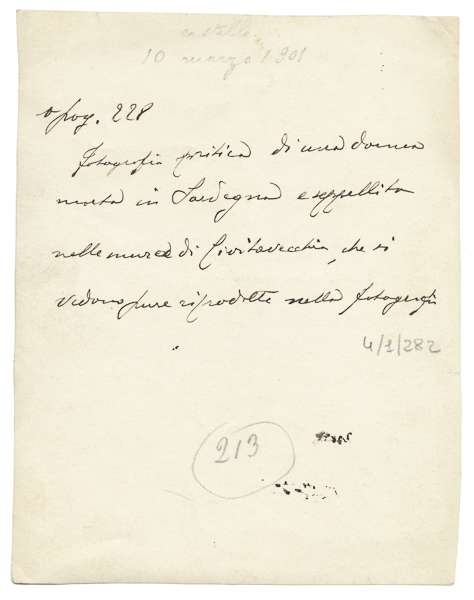 castello
10 marzo 1901
fog. 228
fotografia pritica di una donna
morta in Sardegna e seppellita
nelle mura di Civitavecchia, che si
vedono pure riprodotte nella fotografia
4/1/282
213